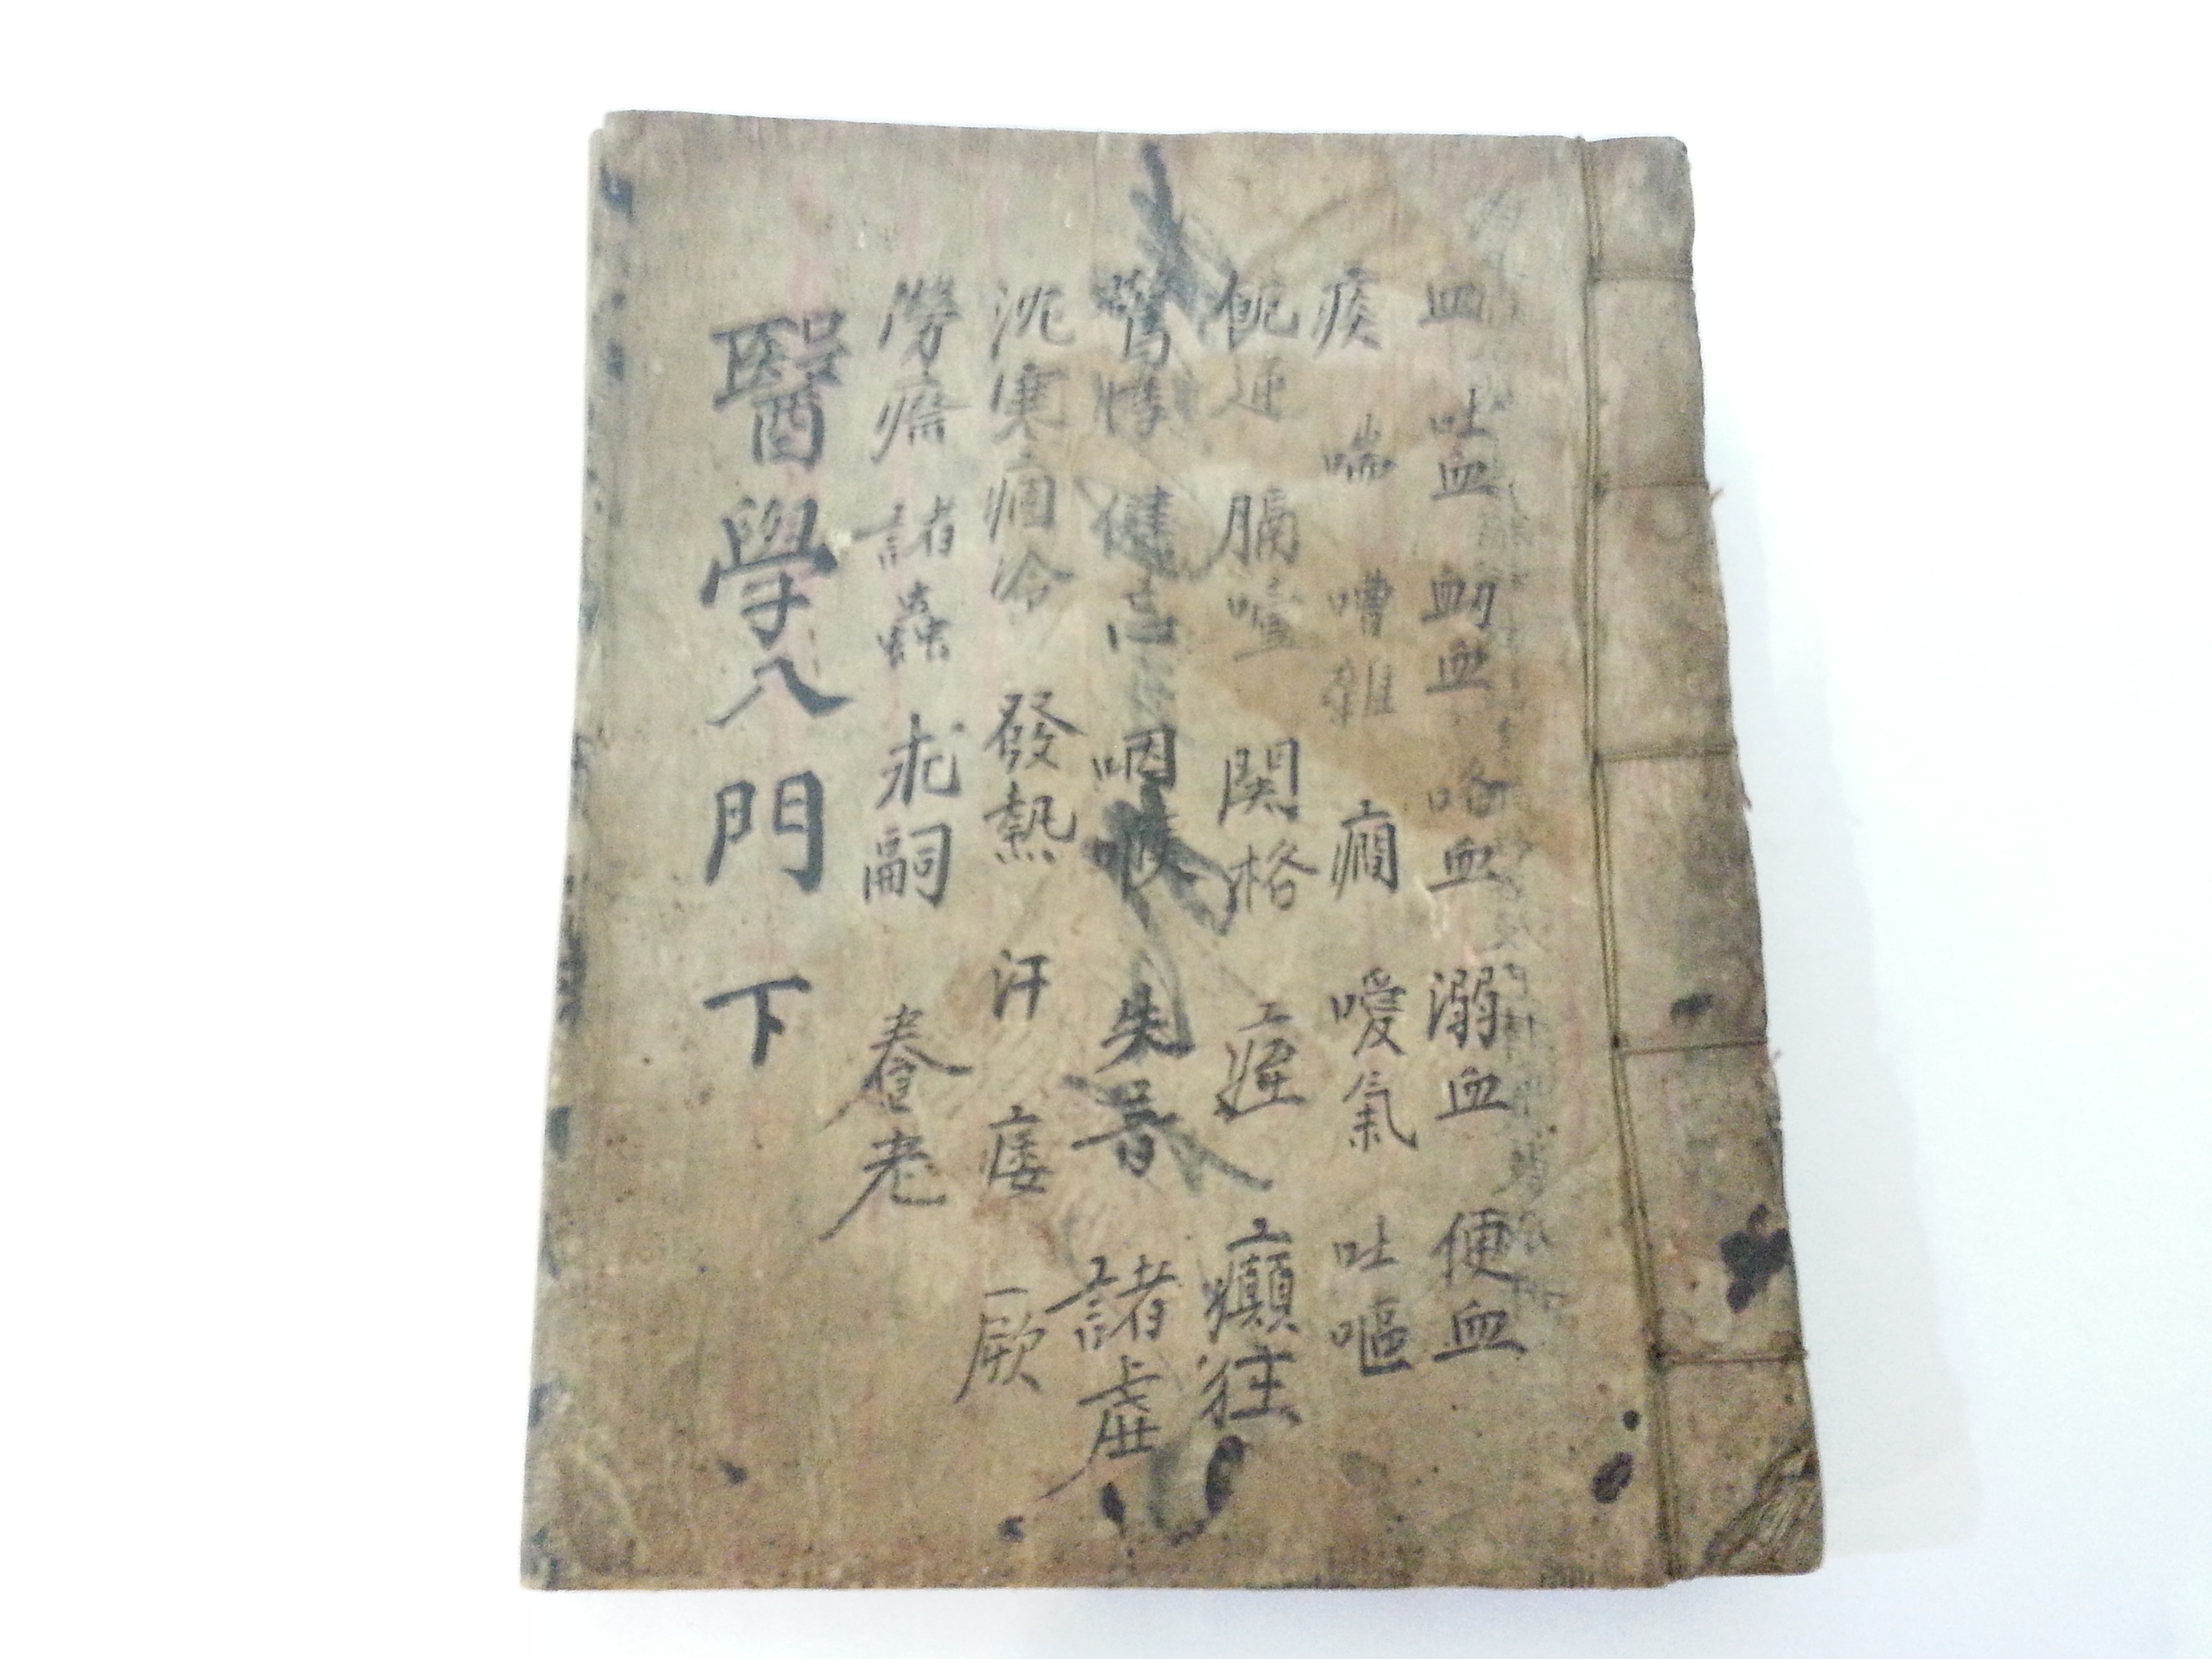 血 吐血 衂血 咯血 溺血 便血
痰 喘 嘈雜 癎 噯氣 吐嘔
膈噎 関格 癲狂
驚悸 健忘 咽喉 失音 諸虛
沉寒痼冷 發熱 汗 痿 厥
勞瘵 諸蟲 求嗣 養老
醫學入門 下